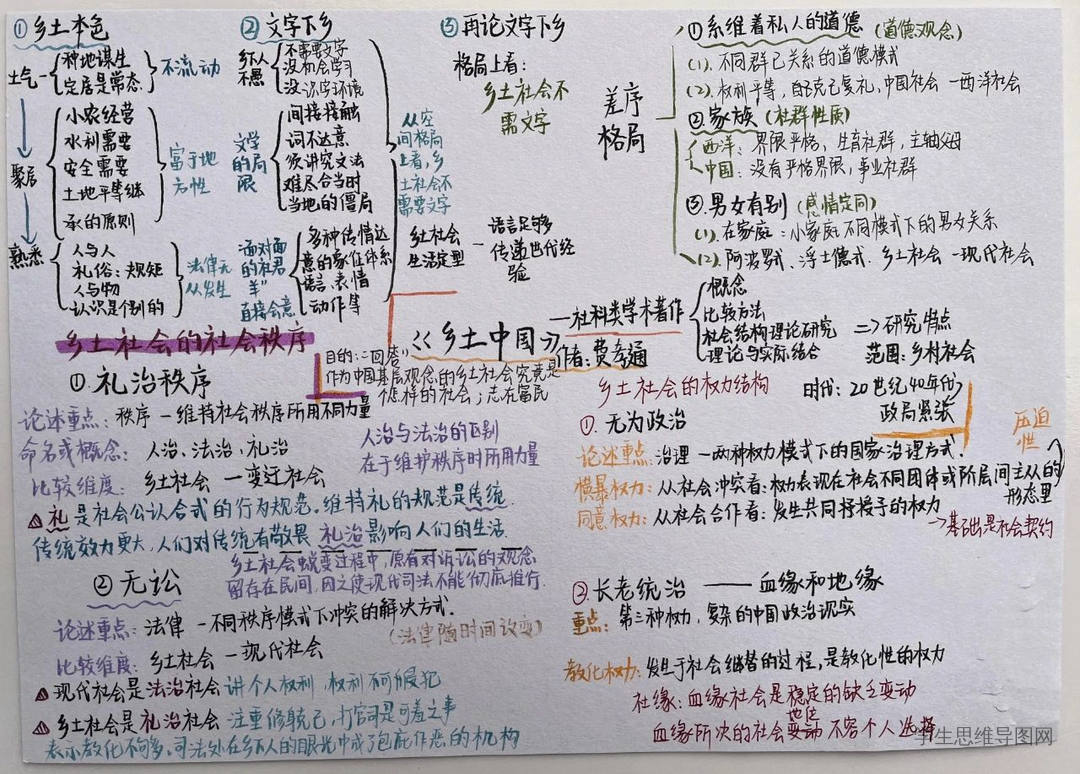 ①乡土本色
土气
种地谋生
定居是常态
不流动
聚居
小农经营
水利需要
安全需要
土地平等继
承的原则
富于地
方性
熟悉
人与人
礼俗：规矩
人与物
认识是个别的
法律无
从发生
②文字下乡
乡下人
不愚
不需要文字
没机会学习
没识字环境
文字
的局
限
间接接触
词不达意
须讲究文法
难尽合当时
当地的僵局
面对面
的社群
直接会意
多种传情达
意的象征体系
语言、表情
动作等
从空
间格局
上看，乡
土社会不
需要文字
③再论文字下乡
格局上看：
乡土社会不
需文字
乡土社会
生活定型
语言足够
传递世代经
验
差序
格局
①系维着私人的道德（道德观念）
(1).不同群己关系的道德模式
(2).权利平等，自我克己复礼，中国社会一西洋社会
②家族（社群性质）
西洋：界限严格，生育社群，主轴父母
中国：没有严格界限，事业社群
③.男女有别（感情定向）
(1).在家庭：小家庭不同模式下的男女关系
(2).阿波罗式、浮士德式．乡土社会一现代社会
《乡土中国》
一社科类学术著作
作者：费孝通
概念
比较方法
社会结构理论研究
理论与实际结合
=>研究特点
范围：乡村社会
时代：20世纪40年代
政局紧张
目的：“回答”
作为中国基层观念的乡土社会究竟是
怎样的社会；志在富民
乡土社会的社会秩序
①.礼治秩序
论述重点：秩序一维持社会秩序所用不同力量
命名或概念：人治、法治、礼治
比较维度：乡土社会一变迁社会
人治与法治的区别
在于维护秩序时所用力量
礼是社会公认合式的行为规范．维持礼的规范是传统．
传统效力更大，人们对传统有敬畏 礼治影响人们的生活．
乡土社会蜕变过程中，原有对诉讼的观念
留存在民间，因之使现代司法不能彻底推行．
②无讼
论述重点：法律一不同秩序模式下冲突的解决方式．
（法律随时间改变）
比较维度：乡土社会一现代社会
现代社会是法治社会 讲个人权利，权利不可侵犯
乡土社会是礼治社会 注重修身克己，打官司是可羞之事
表示教化不够．司法处在乡下人的眼光中成了包庇作恶的机构
乡土社会的权力结构
①.无为政治
论述重点：治理一两种权力模式下的国家治理方式．
横暴权力：从社会冲突看：权力表现在社会不同团体或阶层间主从的
形态里
压迫
性
同意权力：从社会合作看：发生共同授予的权力
→基础是社会契约
②长老统治——血缘和地缘
重点：第三种权力，复杂的中国政治现实
教化权力：发生于社会继替的过程，是教化性的权力
社缘：血缘社会是稳定的缺乏变动
血缘所决的社会地位不容个人选择
学生思维导图网